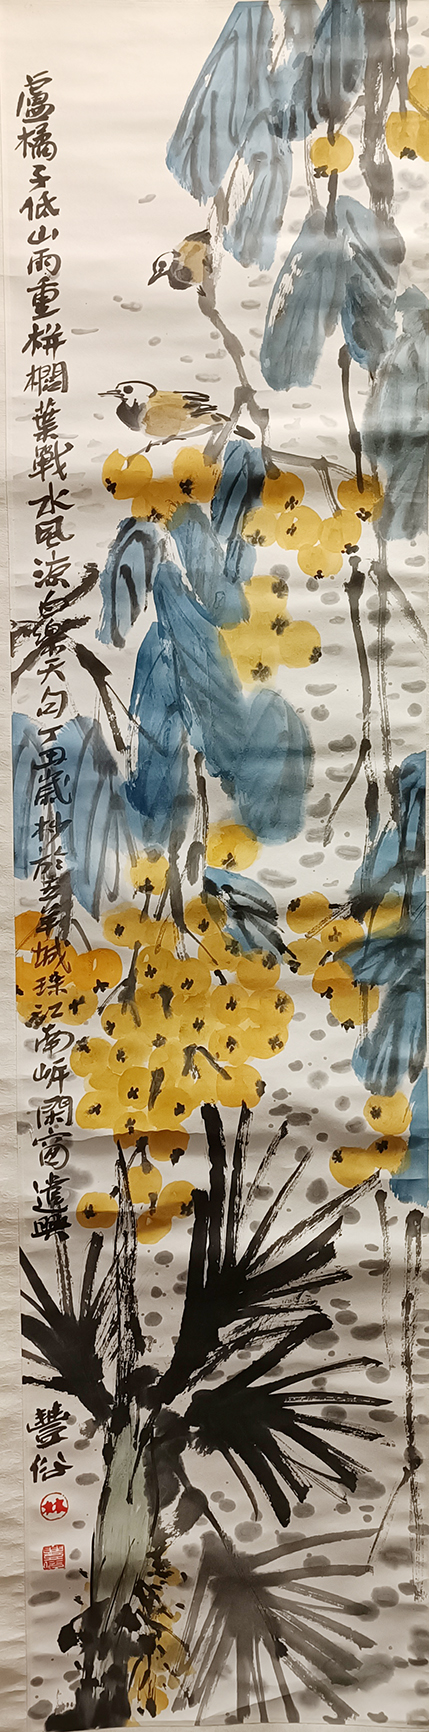 盧橘子低山雨重栟櫚葉戰水風涼白樂天句丁丑歲抄於五羊城珠江南岸閑窗遣興
豐俗
林